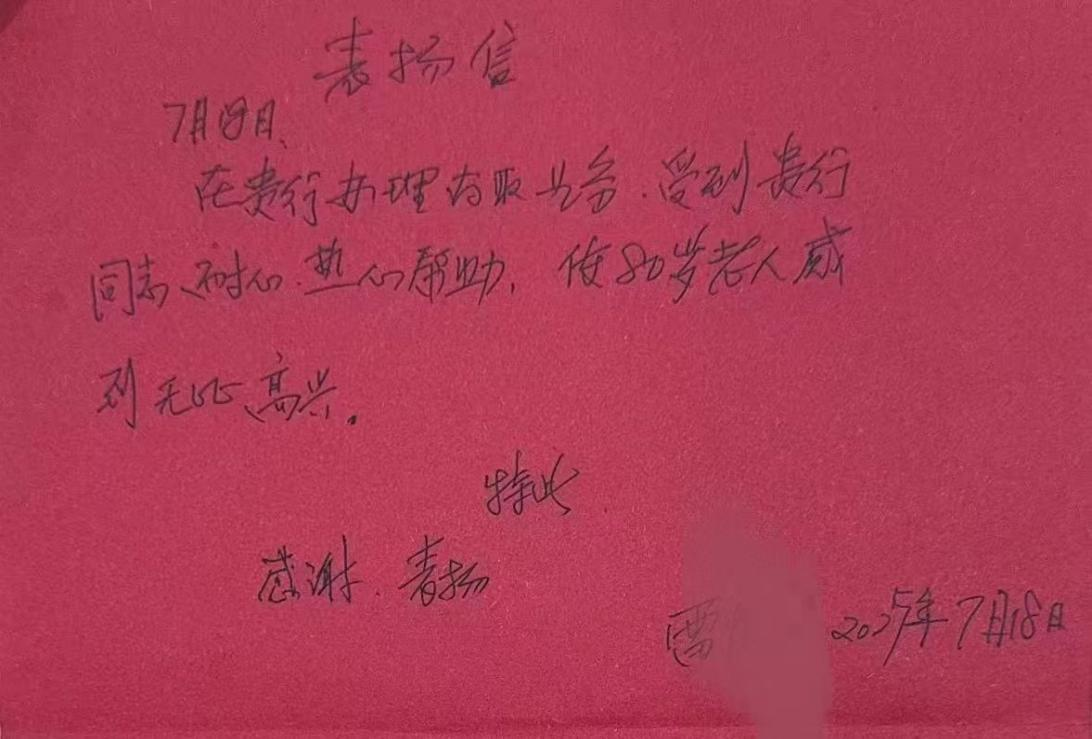 表扬信
7月18日、
在贵行办理存取业务.受到贵行
同志、耐心.热心帮助,使80岁老人感
到无比、高兴。
特此
感谢.表扬
雷 2025年7月18日